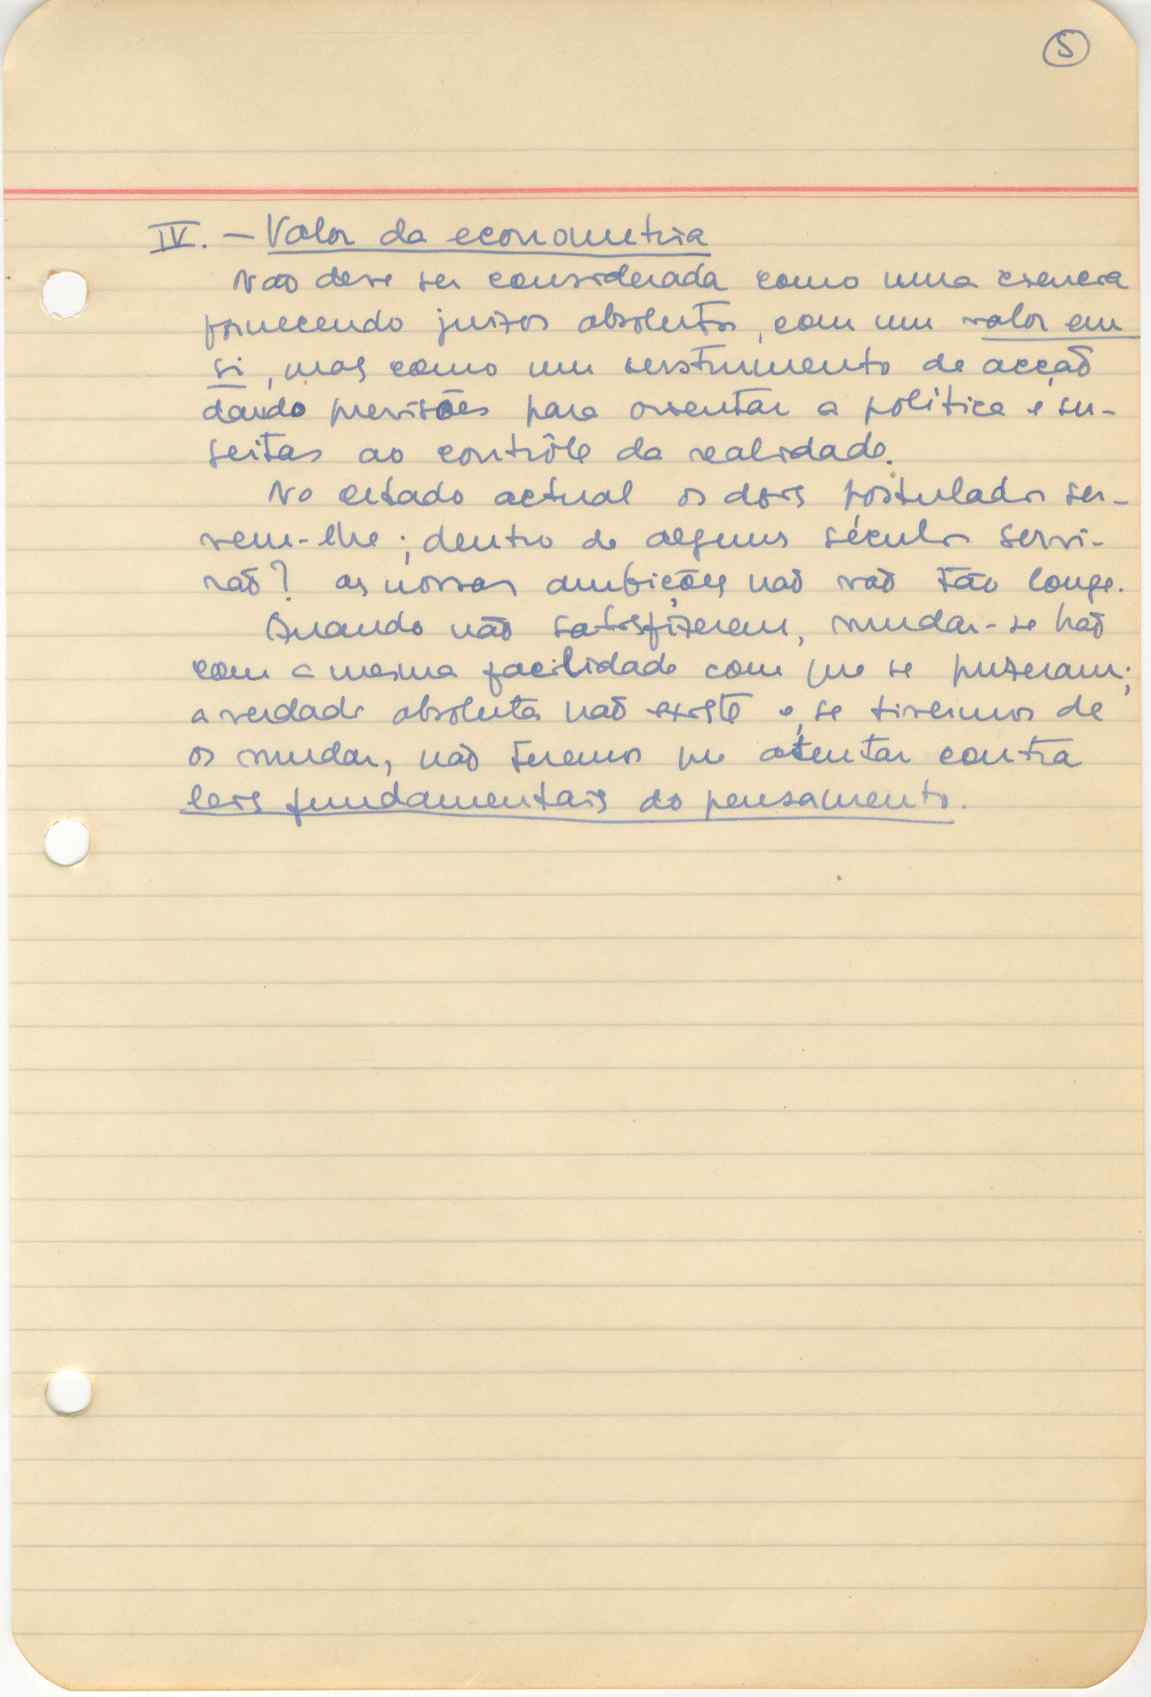 5
IV. – Valor da econometria
Não deve ser considerada como uma ciencia
fornecendo juizos absolutos, com um valor em
si, mas como um instrumento de acção
dando previsões para orientar a política e su-
jeitas ao contrôle da realidade.
No estado actual os dois postulados ser-
vem-lhe; dentro de alguns séculos servi-
rão? as nossas ambições não vão tão longe.
Quando não satisfizerem, mudar-se hão
com a mesma facilidade com que se puzeram;
a verdade absoluta não existe e, se tivermos de
os mudar, não teremos que atentar contra
leis fundamentais do pensamento.